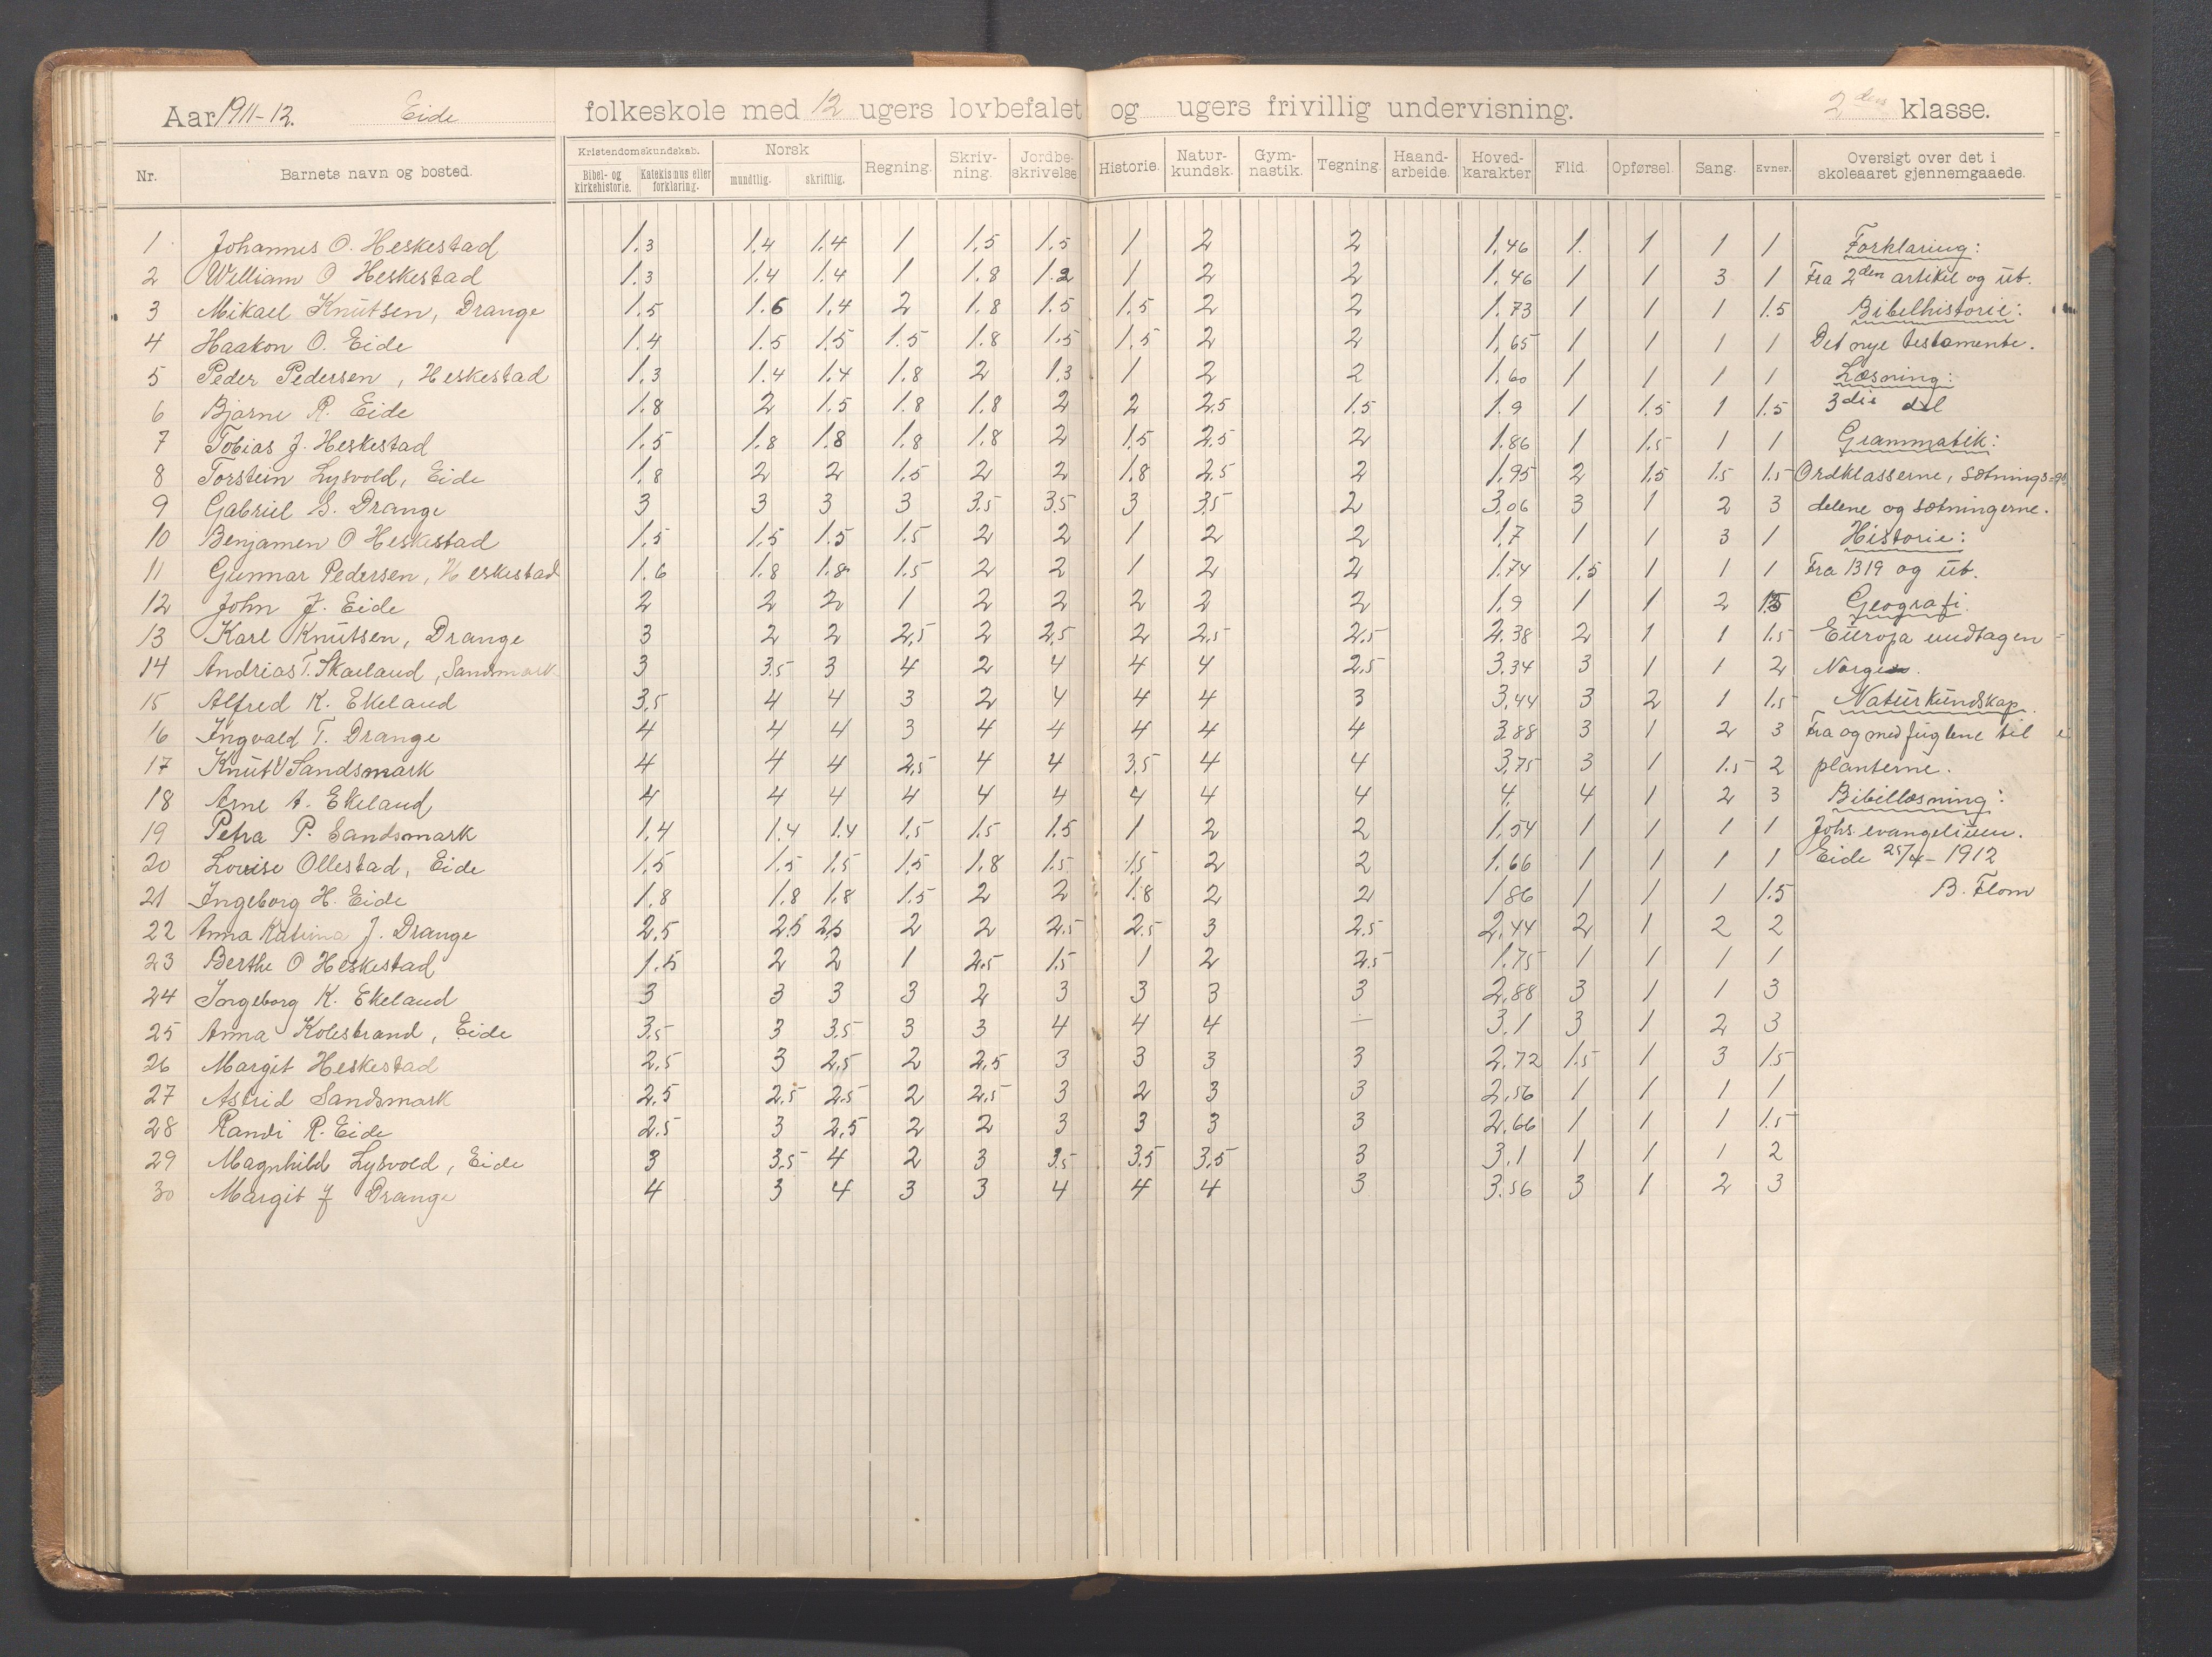 Aar 1911-12. Eide folkeskole med 12 ugers lovbefalet og ugers frivillig undervisning. 2den klasse.
Nr. Barnets navn og bosted. Kristendomskundskab. Bibel- og kirkehistorie. Katekismus eller forklaring. Norsk mundtlig. skriftlig. Regning. Skriv-ning. Jordbe-skrivelse Historie. Natur-kundsk. Gym-nastik. Tegning. Haand-arbeide. Hoved-karakter Flid. Opførsel. Sang. Evner. Oversigt over det i skoleaaret gjennemgaaede.
1 Johannes O. Heskestad 1.3 1.4 1.4 1 1.5 1.5 1 2 2 1.46 1. 1 1 1 Forklaring:
2 William O Heskestad 1.3 1.4 1.4 1 1.8 1.2 1 2 2 1.46 1 1 3 1 Fra 2den artikel og ut.
3 Mikael Knutsen, Drange 1.5 1.6 1.4 2 1.8 1.5 1.5 2 2 1.73 1 1 1 1.5 Bibelhistorie:
4 Haakon O. Eide 1.4 1.5 1.5 1.5 1.8 1.5 1.5 2 2 1.65 1 1 1 1 Det nye testamente.
5 Peder Pedersen, Heskestad 1.3 1.4 1.4 1.8 2 1.3 1 2 2 1.60 1 1 1 1 Læsning:
6 Bjarne R. Eide 1.8 2 1.5 1.8 1.8 2 2 2.5 1.5 1.9 1 1.5 1 1.5 3die del
7 Tobias J. Heskestad 1.5 1.8 1.8 1.8 1.8 2 1.5 2.5 2 1.86 1 1.5 1 1 Grammatik:
8 Torstein Lysvold, Eide 1.8 2 2 1.5 2 2 1.8 2.5 2 1.95 2 1.5 1.5 1.5 Ordklasserne, sætnings=
9 Gabriel S. Drange 3 3 3 3 3.5 3.5 3 3.5 2 3.06 3 1 2 3 delene og sætningerne.
10 Benjamen O Heskestad 1.5 1.5 1.5 1.5 2 2 1 2 2 1.7 1 1 3 1 Historie:
11 Gunnar Pedersen, Heskestad 1.6 1.8 1.8 1.5 2 2 1 2 2 1.74 1.5 1 1 1 Fra 1319 og ut.
12 John J. Eide 2 2 2 1 2 2 2 2 2 1.9 1 1 2 1.5 Geografi.
13 Karl Knutsen, Drange 3 2 2 2.5 2 2.5 2 2.5 2.5 2.38 2 1 1 1.5 Europa undtagen
14 Andrias T. Skaeland, Sandsmark 3 3.5 3 4 2 4 4 4 2.5 3.34 3 1 1 2 Norge.
15 Alfred K. Ekeland 3.5 4 4 3 2 4 4 4 3 3.44 3 2 1 1.5 Naturkundskap.
16 Ingvald T. Drange 4 4 4 3 4 4 4 4 4 3.88 3 1 2 3 Fra og med fuglene til
17 Knut V Sandsmark 4 4 4 2.5 4 4 3.5 4 4 3.75 3 1 1.5 2 planterne.
18 Arne A. Ekeland 4 4 4 4 4 4 4 4 4 4. 4 1 2 3 Bibellæsning:
19 Petra P. Sandsmark 1.4 1.4 1.4 1.5 1.5 1.5 1 2 2 1.54 1 1 1 1 Johs. evangelium.
20 Louise Ollestad, Eide 1.5 1.5 1.5 1.5 1.8 1.5 1.5 2 2 1.66 1 1 1 1 Eide 25/4 - 1912
21 Ingeborg H. Eide 1.8 1.8 1.8 1.5 2 2 1.8 2 2 1.86 1 1 1 1.5 B. Flom
22 Anna Katrina J. Drange 2.5 2.5 2.5 2 2 2.5 2.5 3 2.5 2.44 2 1 2 2
23 Berthe O Heskestad 1.5 2 2 1 2.5 1.5 1 2 2.5 1.75 1 1 1 1
24 Ingeborg K. Ekeland 3 3 3 3 2 3 3 3 3 2.88 3 1 1 3
25 Anna Kolestrand, Eide 3.5 3 3.5 3 3 4 4 4 — 3.1 3 1 2 3
26 Margit Heskestad 2.5 3 2.5 2 2.5 3 3 3 3 2.72 1.5 1 3 1.5
27 Astrid Sandsmark 2.5 2.5 2.5 2 2.5 3 2 3 3 2.56 1 1 1 1
28 Randi R. Eide 2.5 3 2.5 2 2 3 3 3 3 2.66 1 1 1 1.5
29 Magnhild Lysvold, Eide 3 3.5 4 2 3 3.5 3.5 3.5 3 3.1 1 1 1 2
30 Margit J Drange 4 3 4 3 3 4 4 4 3 3.56 3 1 2 3